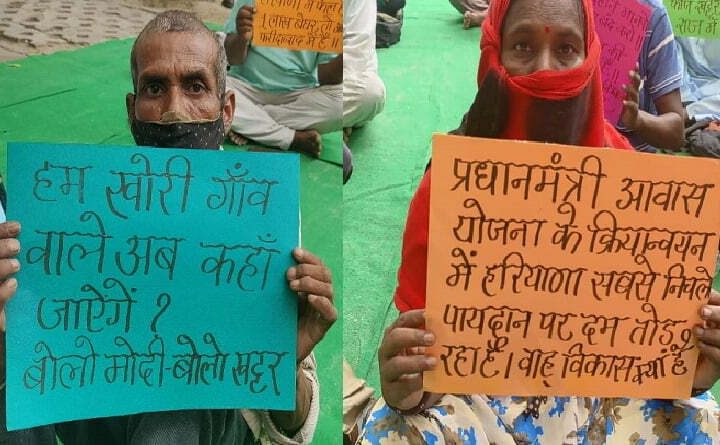 हम खोरी गाँव
वाले अब कहाँ
जाऐंगें ?
बोलो मोदी-बोलो खट्टर
प्रधानमंत्री आवास
योजना के क्रियान्वयन
में हरियाणा सबसे निचले
पायदान पर दम तोड़
रहा है। वाह् विकास क्या है ?
1 लाख बेघर
फरीदाबाद में है।।